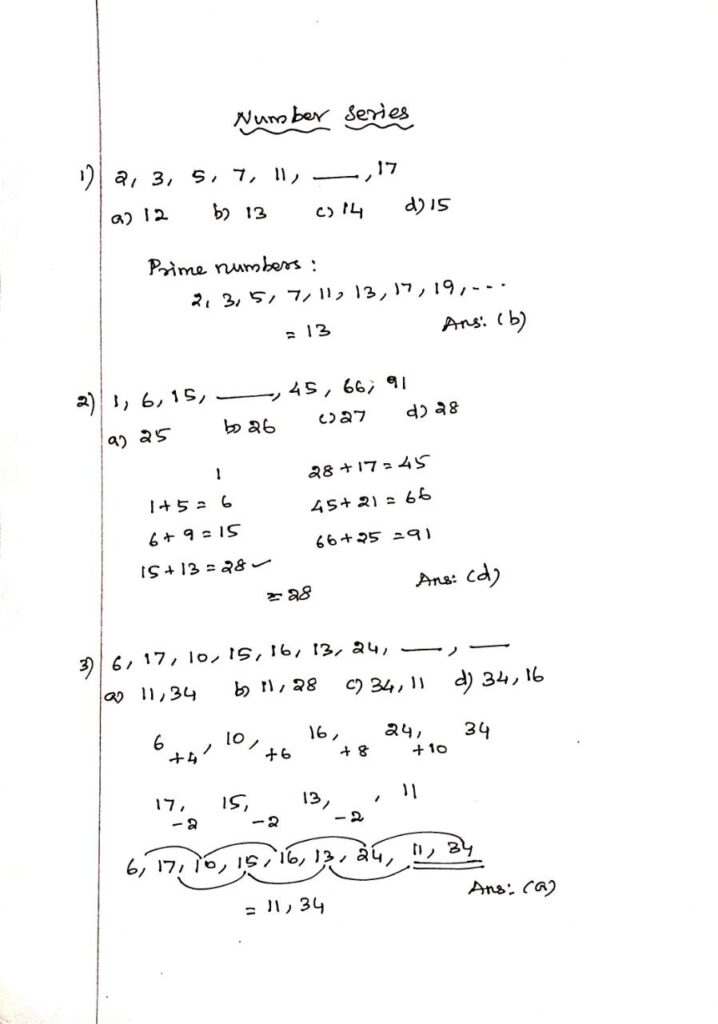 Number Series
1) 2, 3, 5, 7, 11, ___, 17
a) 12 b) 13 c) 14 d) 15
Prime numbers :
2, 3, 5, 7, 11, 13, 17, 19, ---
= 13 Ans: (b)
2) 1, 6, 15, ___, 45, 66, 91
a) 25 b) 26 c) 27 d) 28
1 28 + 17 = 45
1 + 5 = 6 45 + 21 = 66
6 + 9 = 15 66 + 25 = 91
15 + 13 = 28 ✓
= 28 Ans: (d)
3) 6, 17, 10, 15, 16, 13, 24, ___, ___
a) 11, 34 b) 11, 28 c) 34, 11 d) 34, 16
6 , 10, 16, 24, 34
+4 +6 +8 +10
17, 15, 13, , 11
-2 -2 -2
6, 17, 10, 15, 16, 13, 24, 11, 34
= 11, 34 Ans: (a)